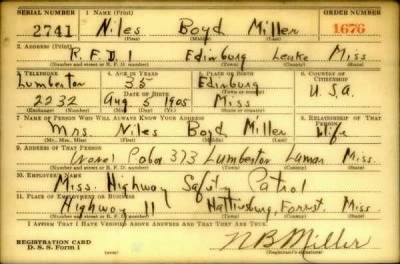 SERIAL NUMBER 1. NAME (Print) ORDER NUMBER
2741 Niles Boyd Miller 1676
(First) (Middle) (Last)
2. ADDRESS (Print)
R.F.D. 1 Edinburg Leake Miss
(Number and street or R. F. D. number) (Town) (County) (State)
3. TELEPHONE 4. AGE IN YEARS 5. PLACE OF BIRTH 6. COUNTRY OF CITIZENSHIP
Lumberton 35 Edinburg
DATE OF BIRTH (Town or county) U.S.A.
2232 Aug 5 1905 Miss
(Exchange) (Number) (Mo.) (Day) (Yr.) (State or country)
7. NAME OF PERSON WHO WILL ALWAYS KNOW YOUR ADDRESS 8. RELATIONSHIP OF THAT PERSON
Mrs. Niles Boyd Miller Wife
(Mr., Mrs., Miss) (First) (Middle) (Last)
9. ADDRESS OF THAT PERSON
373 Lumberton Lamar Miss.
(Number and street or R. F. D. number) (Town) (County) (State)
10. EMPLOYER'S NAME
Miss. Highway Safety Patrol
11. PLACE OF EMPLOYMENT OR BUSINESS
Highway 11 Hattiesburg, Forrest, Miss
(Number and street or R. F. D. number) (Town) (County) (State)
I AFFIRM THAT I HAVE VERIFIED ABOVE ANSWERS AND THAT THEY ARE TRUE.
REGISTRATION CARD
D. S. S. Form 1 N B Miller
(Registrant's signature)